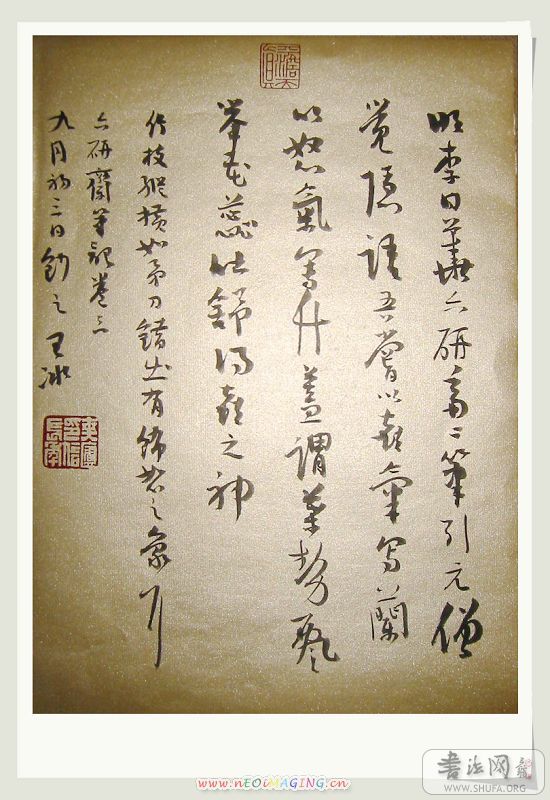 明李日華六研斋二筆引元僧
覺隱語吾嘗以喜氣寫蘭
以怒氣寫竹蓋謂葉勢飄
舉花蕊吐舒得喜之神
竹枝縱橫如矛刀錯出有飾怒之象耳
六研齋筆記卷三
九月初三日釗之王冰
书法网
WWW.SHUFA.ORG
www.nEOiMAGING.cn